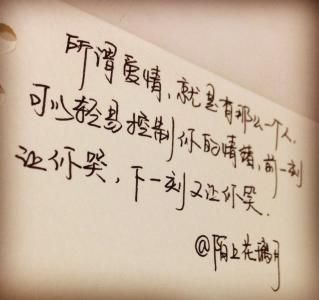 所谓爱情,就是有那么一个人.
可以轻易控制你的情绪,前一刻
让你哭,下一刻又让你笑.
@陌上花漓月